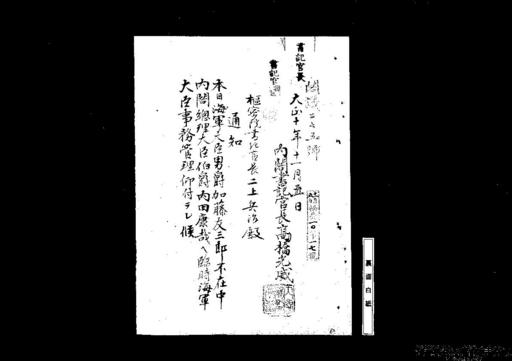 書記官長
書記官
閣議
大正十年十一月五日
内閣書記官長高橋光威
枢密院書記官長二上兵治殿
通知
本日海軍大臣男爵加藤友三郎不在中
内閣総理大臣伯爵内田康哉ヘ臨時海軍
大臣事務管理仰付ラレ候
裏面白紙